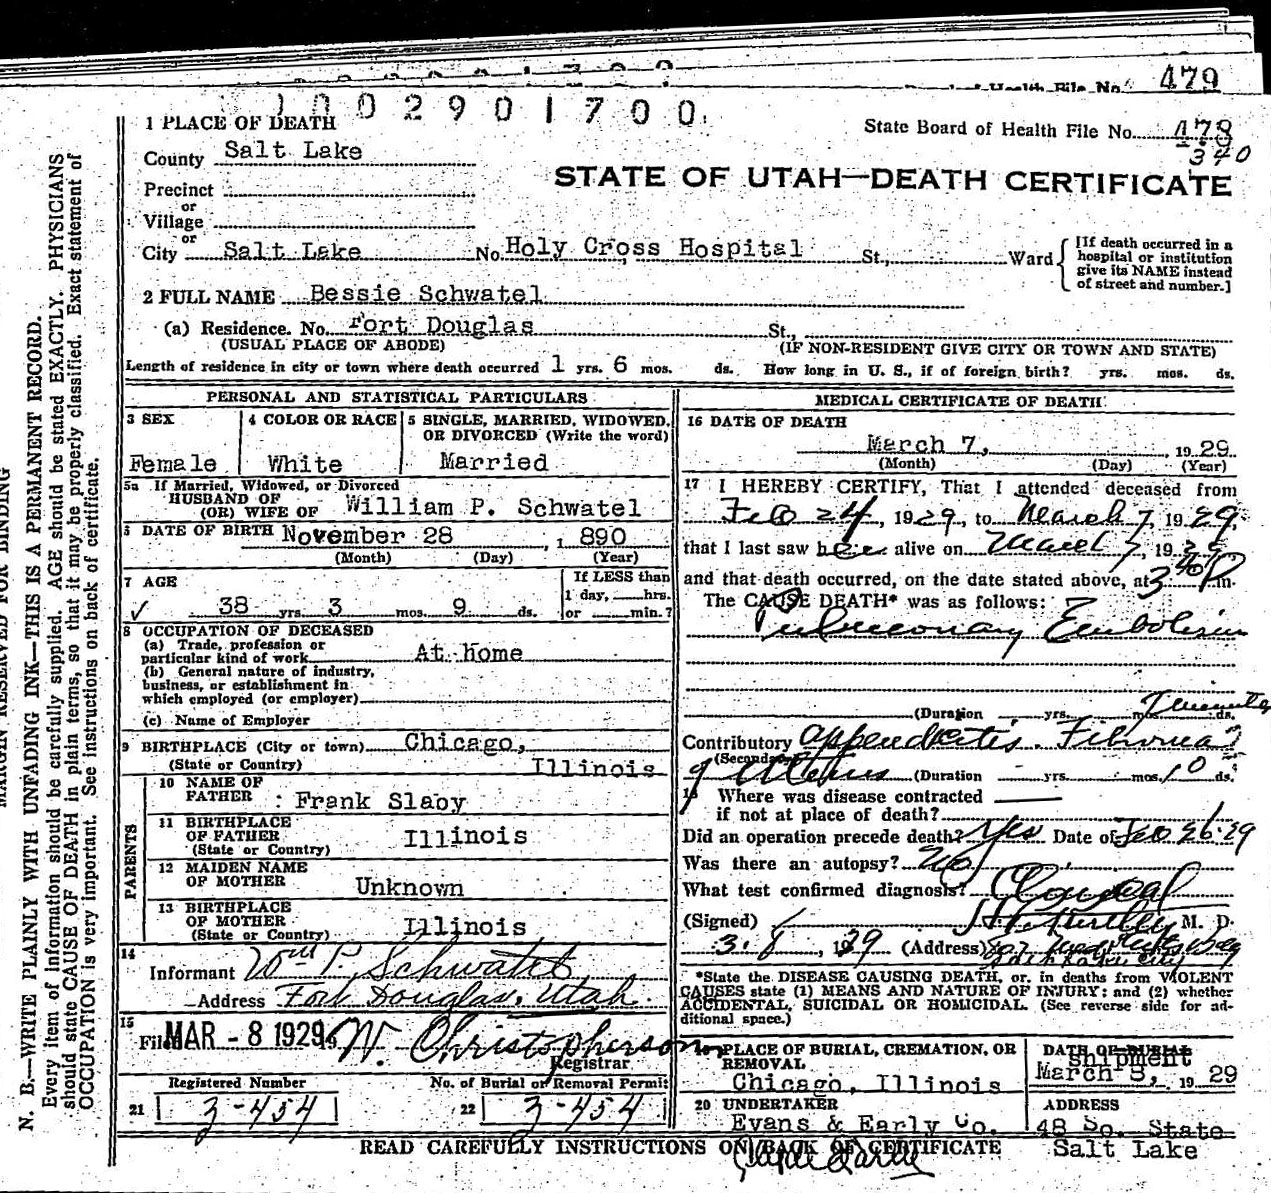 479
1002901700
State Board of Health File No. 478
340
1 PLACE OF DEATH
County Salt Lake
STATE OF UTAH—DEATH CERTIFICATE
Precinct
or
Village
or
City Salt Lake No. Holy Cross Hospital St., Ward
[If death occurred in a hospital or institution give its NAME instead of street and number.]
2 FULL NAME Bessie Schwatel
(a) Residence. No. Fort Douglas St.,
(USUAL PLACE OF ABODE) (IF NON-RESIDENT GIVE CITY OR TOWN AND STATE)
Length of residence in city or town where death occurred 1 yrs. 6 mos. ds. How long in U. S., if of foreign birth? yrs. mos. ds.
PERSONAL AND STATISTICAL PARTICULARS
3 SEX
Female
4 COLOR OR RACE
White
5 SINGLE, MARRIED, WIDOWED, OR DIVORCED (Write the word)
Married
5a If Married, Widowed, or Divorced
HUSBAND OF
(OR) WIFE OF William P. Schwatel
DATE OF BIRTH November 28, 1890
(Month) (Day) (Year)
7 AGE
✓ 38 yrs. 3 mos. 9 ds.
If LESS than
1 day, hrs.
or min.?
8 OCCUPATION OF DECEASED
(a) Trade, profession or
particular kind of work At home
(b) General nature of industry,
business, or establishment in
which employed (or employer)
(c) Name of Employer
9 BIRTHPLACE (City or town) Chicago,
(State or Country) Illinois
PARENTS
10 NAME OF
FATHER Frank Slaby
11 BIRTHPLACE
OF FATHER Illinois
(State or Country)
12 MAIDEN NAME
OF MOTHER Unknown
13 BIRTHPLACE
OF MOTHER
(State or Country) Illinois
14
Informant Wm P. Schwatel
Address Fort Douglas, Utah.
15
Filed MAR - 8 1929 W. Christopherson
Registrar
Registered Number
21 3-454
No. of Burial or Removal Permit
22 3-454
MEDICAL CERTIFICATE OF DEATH
16 DATE OF DEATH
March 7, 1929
(Month) (Day) (Year)
17 I HEREBY CERTIFY, That I attended deceased from
Feb 24, 1929, to March 7, 1929,
that I last saw her alive on March 7, 1929
and that death occurred, on the date stated above, at 3 40 P m.
The CAUSE DEATH* was as follows:
Pulmonary Embolism
(Duration yrs. mos. ds.
Contributory Appendicitis. Fibroma
(Secondary)
of Uterus (Duration yrs. mos. 10 ds.
Where was disease contracted
if not at place of death?
Did an operation precede death? Yes Date of Feb 26-29
Was there an autopsy? No
What test confirmed diagnosis?
(Signed) M. D.
3-8, 1929 (Address)
*State the DISEASE CAUSING DEATH, or, in deaths from VIOLENT
CAUSES state (1) MEANS AND NATURE OF INJURY; and (2) whether
ACCIDENTAL, SUICIDAL OR HOMICIDAL. (See reverse side for additional space.)
PLACE OF BURIAL, CREMATION, OR
REMOVAL
Chicago, Illinois
DATE OF BURIAL
Shipment
March 8, 1929
20 UNDERTAKER
Evans & Early Co.
ADDRESS
48 So. State
Salt Lake
READ CAREFULLY INSTRUCTIONS ON BACK OF CERTIFICATE
MARGIN RESERVED FOR BINDING
N. B.—WRITE PLAINLY WITH UNFADING INK—THIS IS A PERMANENT RECORD.
Every item of information should be carefully supplied. AGE should be stated EXACTLY. PHYSICIANS
should state CAUSE OF DEATH in plain terms, so that it may be properly classified. Exact statement of
OCCUPATION is very important. See instructions on back of certificate.